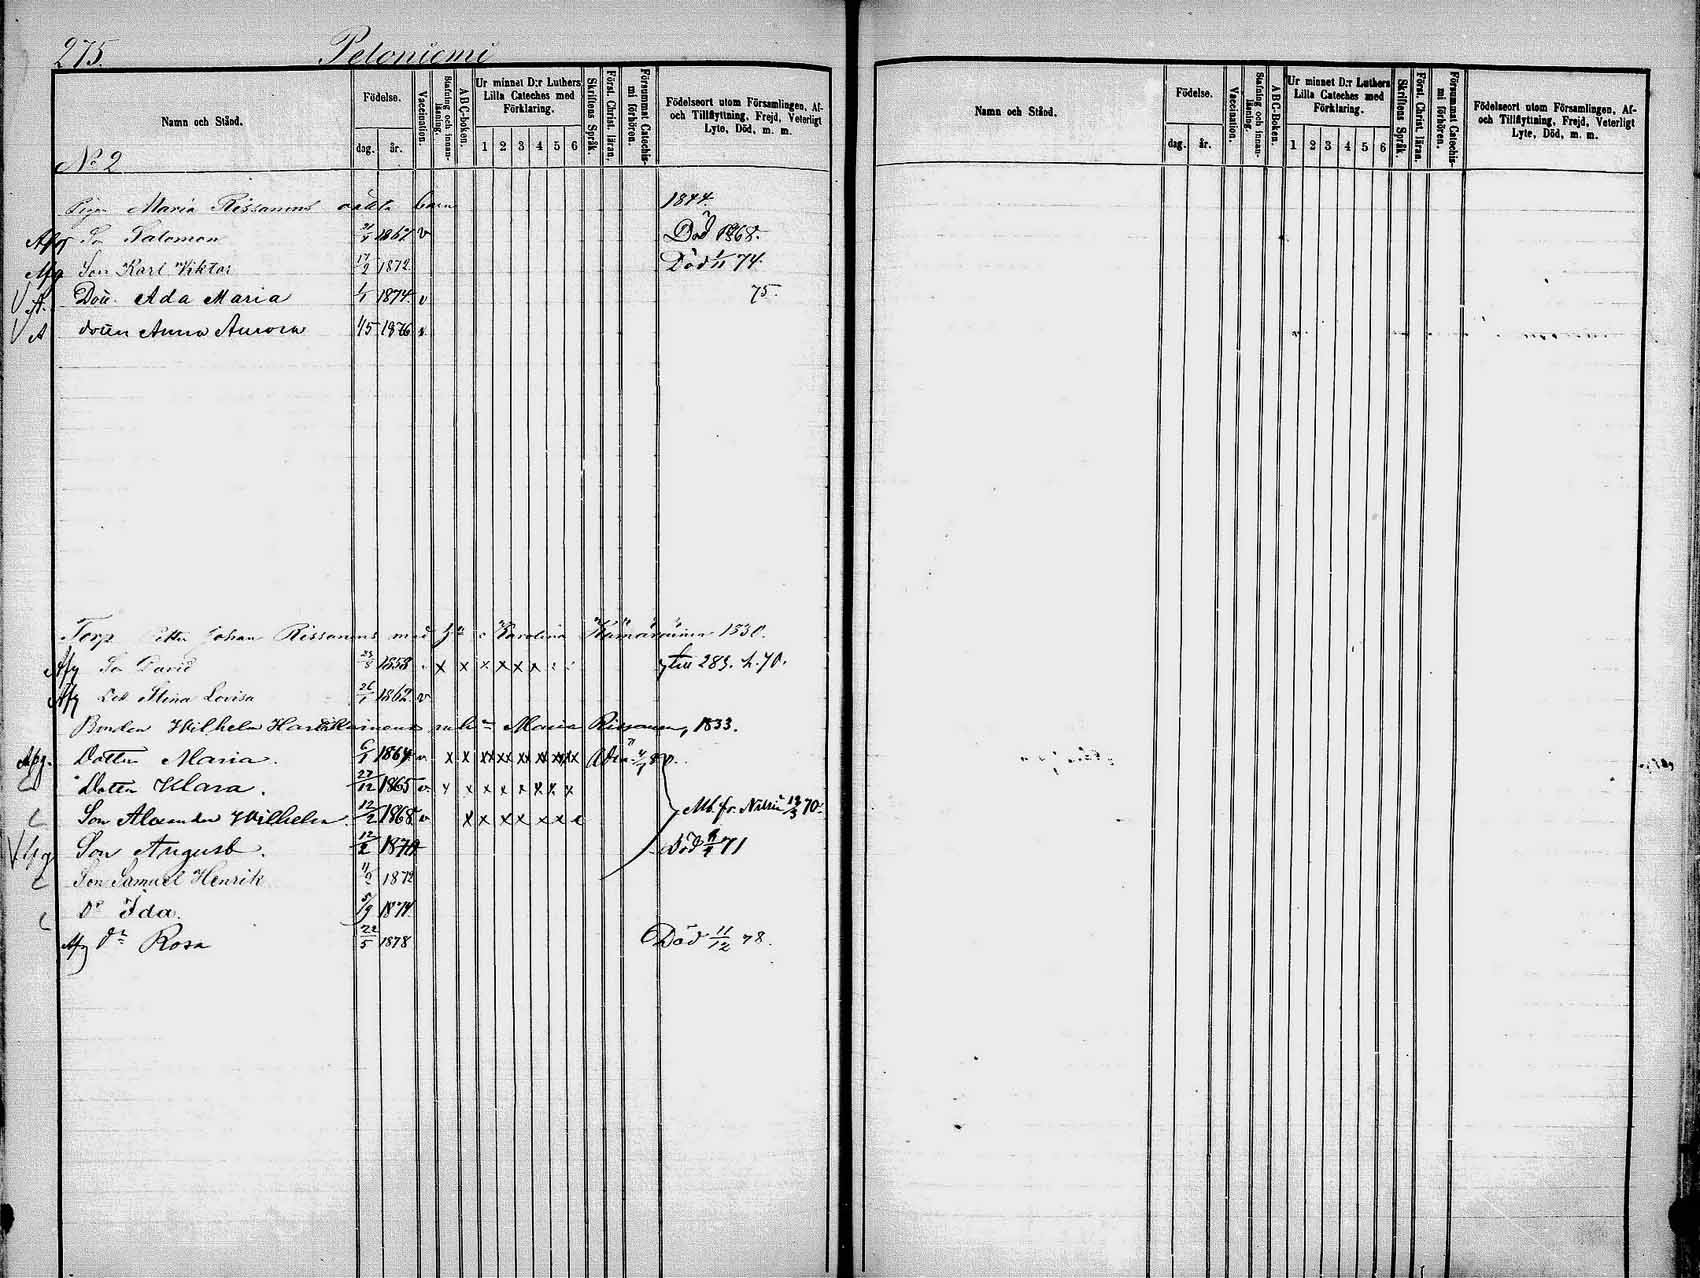 275. Peloniemi
Namn och Stånd.
Födelse.
dag. år.
Vaccination.
Stafning och innanläsning.
ABC-boken.
Ur minnet D:r Luthers Lilla Cateches med Förklaring.
1 2 3 4 5 6
Skriftens Språk.
Först. Christ. läran.
Försummat Catechismi förhören.
Födelseort utom Församlingen, Af- och Tillflyttning, Frejd, Veterligt Lyte, Död, m. m.
No 2
Pigan Maria Rissanens oäkta barn 1844.
Afg Son Salomon 1867 v Död 1868.
Afg Son Karl Viktor 17/2 1872. Död 1/11 74.
V A. Dott. Ada Maria 1/1 1874. v 75.
V A dotter Anna Aurora 1/5 1876 v
Torp Petter Johan Rissanens med h:u Karolina Hämäläinen 1830.
Afg Son David 23/8 1858 x x x x x x till 283. h. 70.
Afg Dott Mina Lovisa 26/1 1862 v
Bonden Wilhelm Hartikainens m h:u Maria Rissanen, 1833.
Afg. Dottern Maria. 6/1 1864 v x x xx xx x x xx xx
Dottern Klara. 27/12 1865 v x x x x x x x x
Son Alexander Wilhelm. 12/2 1868 v x x x x x x x Mb. fr. Nilsiä 13/3 70.
V Afg Son August. 12/2 1870 Död 71
Son Samuel Henrik 1872
D:r Ida. 5/9 1874.
Afg d:r Rosa 22/5 1878 Död 11/12 78.
Namn och Stånd.
Födelse.
dag. år.
Vaccination.
Stafning och innanläsning.
ABC-Boken.
Ur minnet D:r Luthers Lilla Cateches med Förklaring.
1 2 3 4 5 6
Skriftens Språk.
Först. Christ. läran.
Försummat Catechismi förhören.
Födelseort utom Församlingen, Af- och Tillflyttning, Frejd, Veterligt Lyte, Död, m. m.